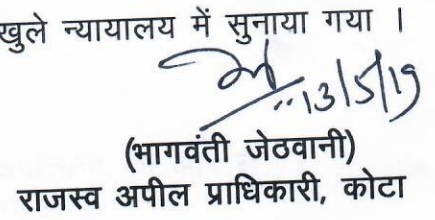 खुले न्यायालय में सुनाया गया ।
13/5/19
(भागवंती जेठवानी)
राजस्व अपील प्राधिकारी, कोटा